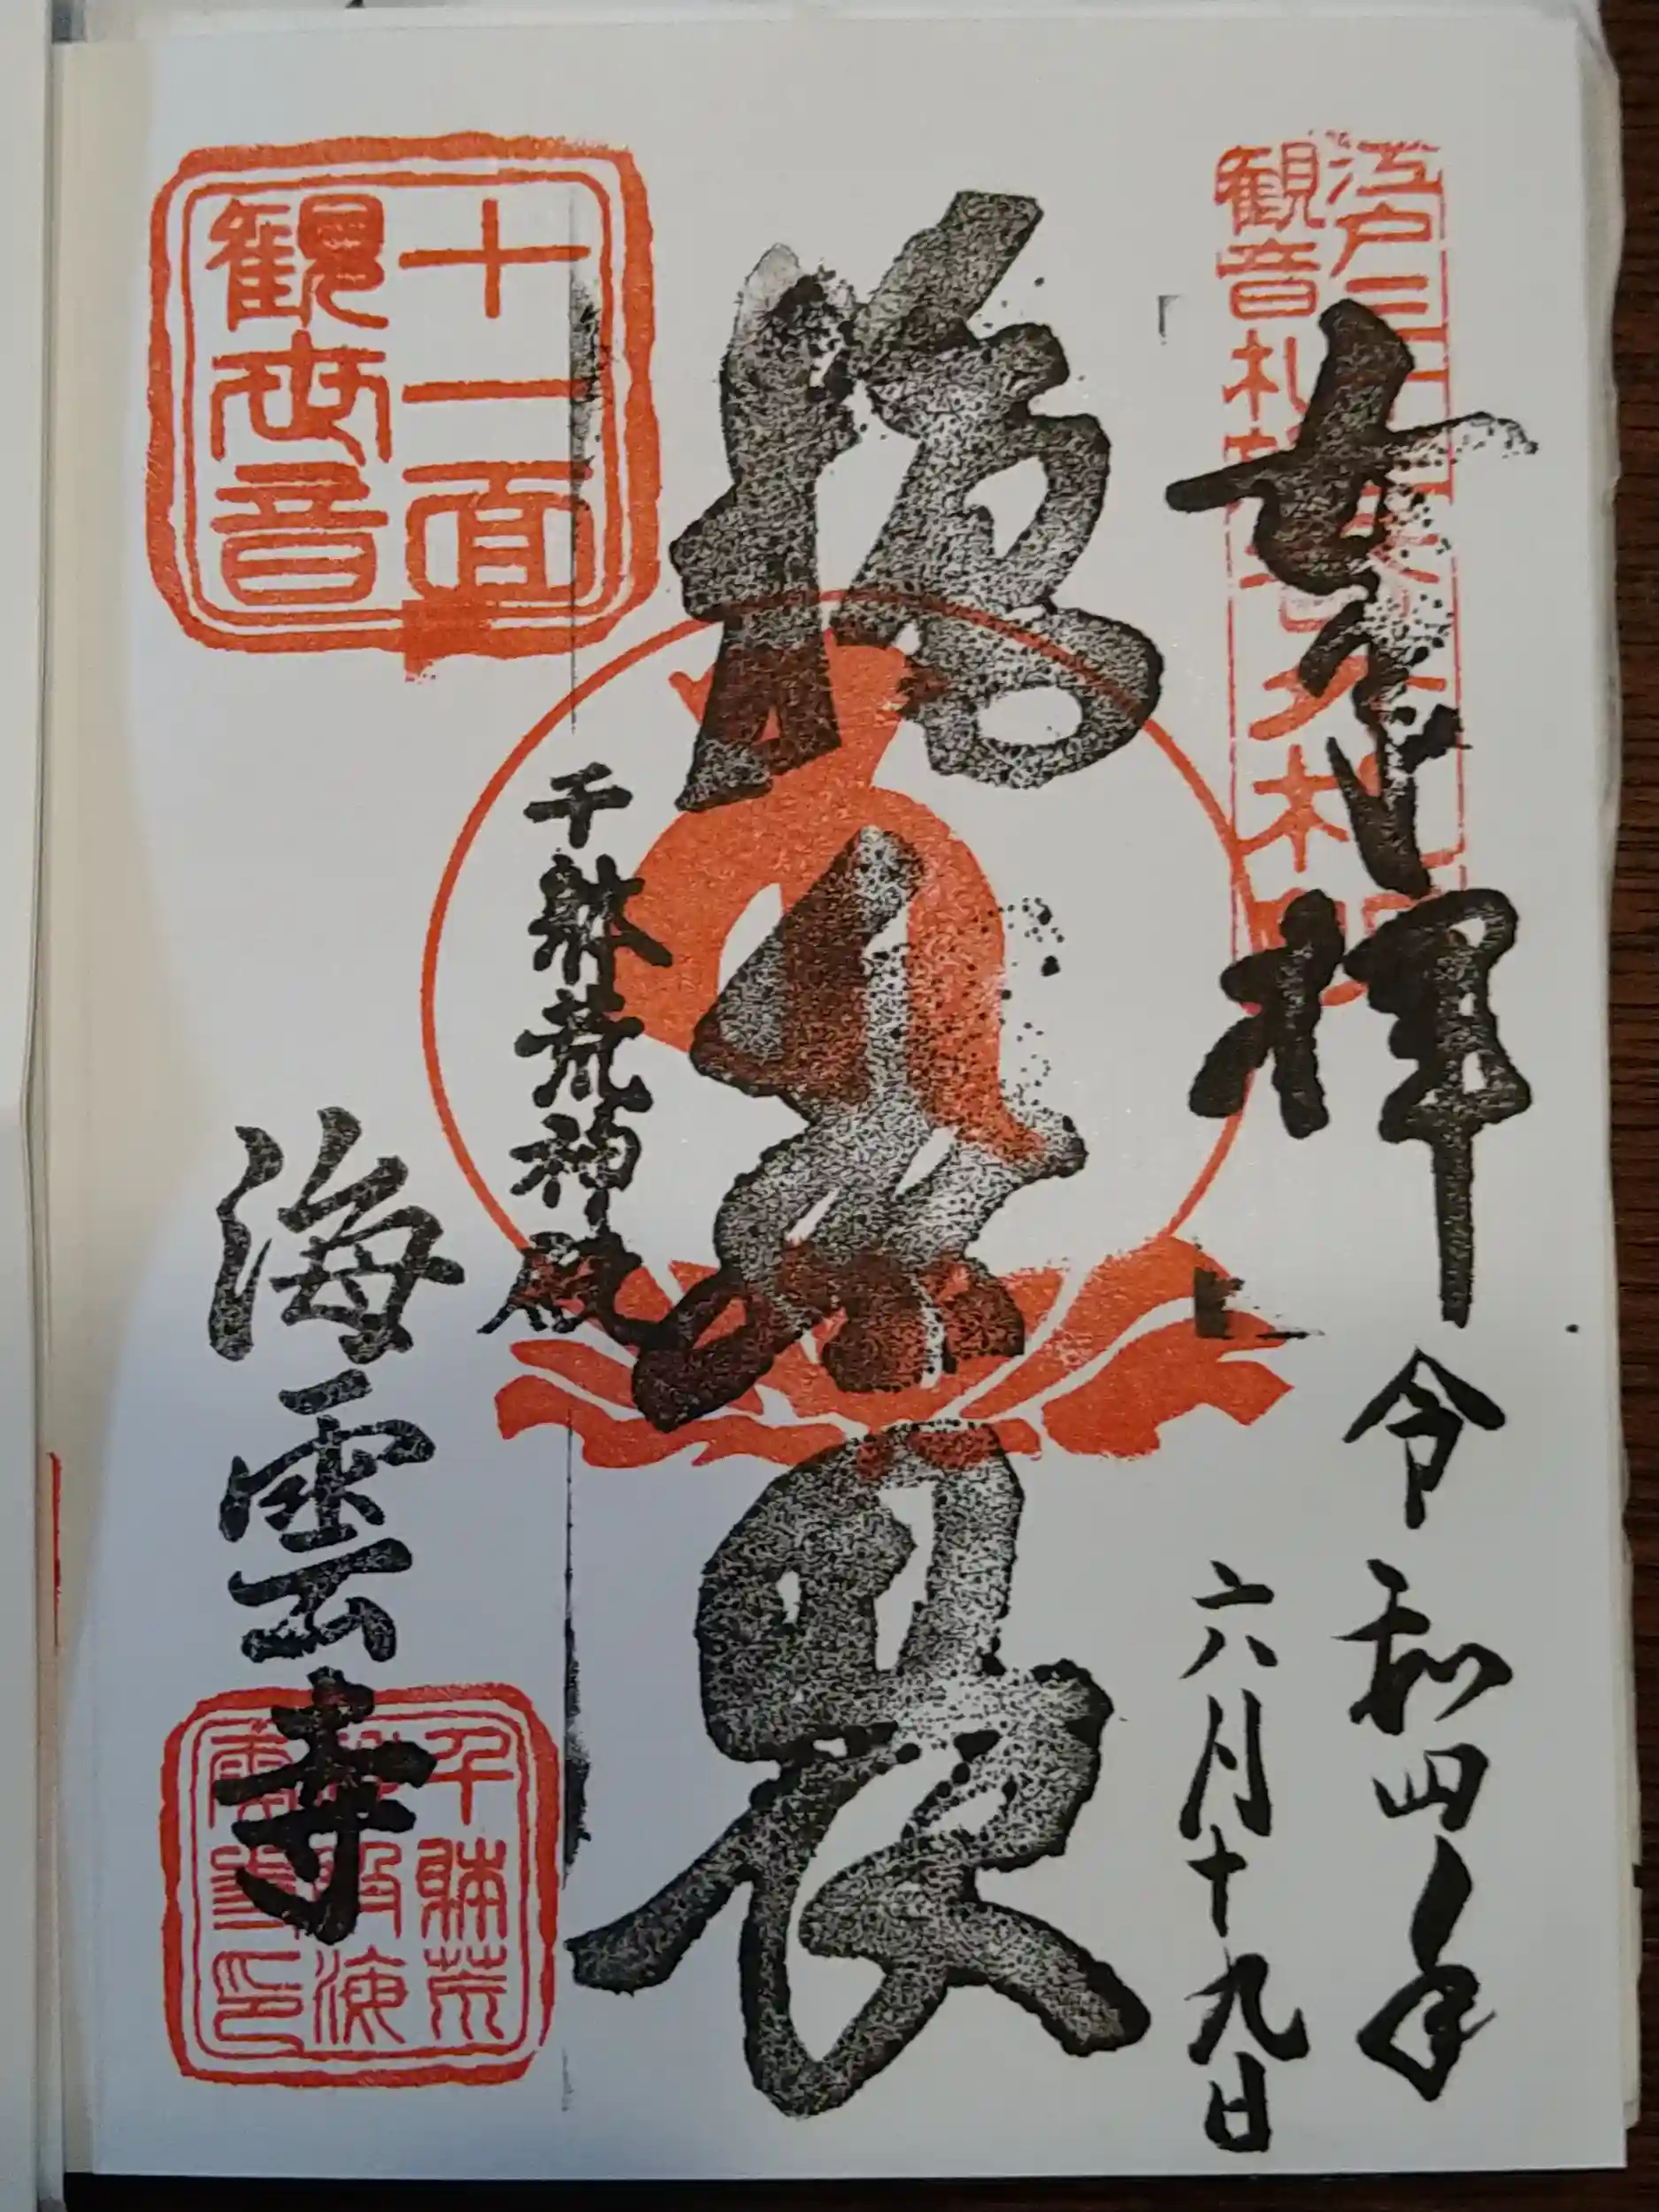 江戸三十
観音札
奉拝
令和四年
六月十九日
施無畏
千躰荒神殿
十一面
観世音
海雲寺
千躰荒
殿海
印